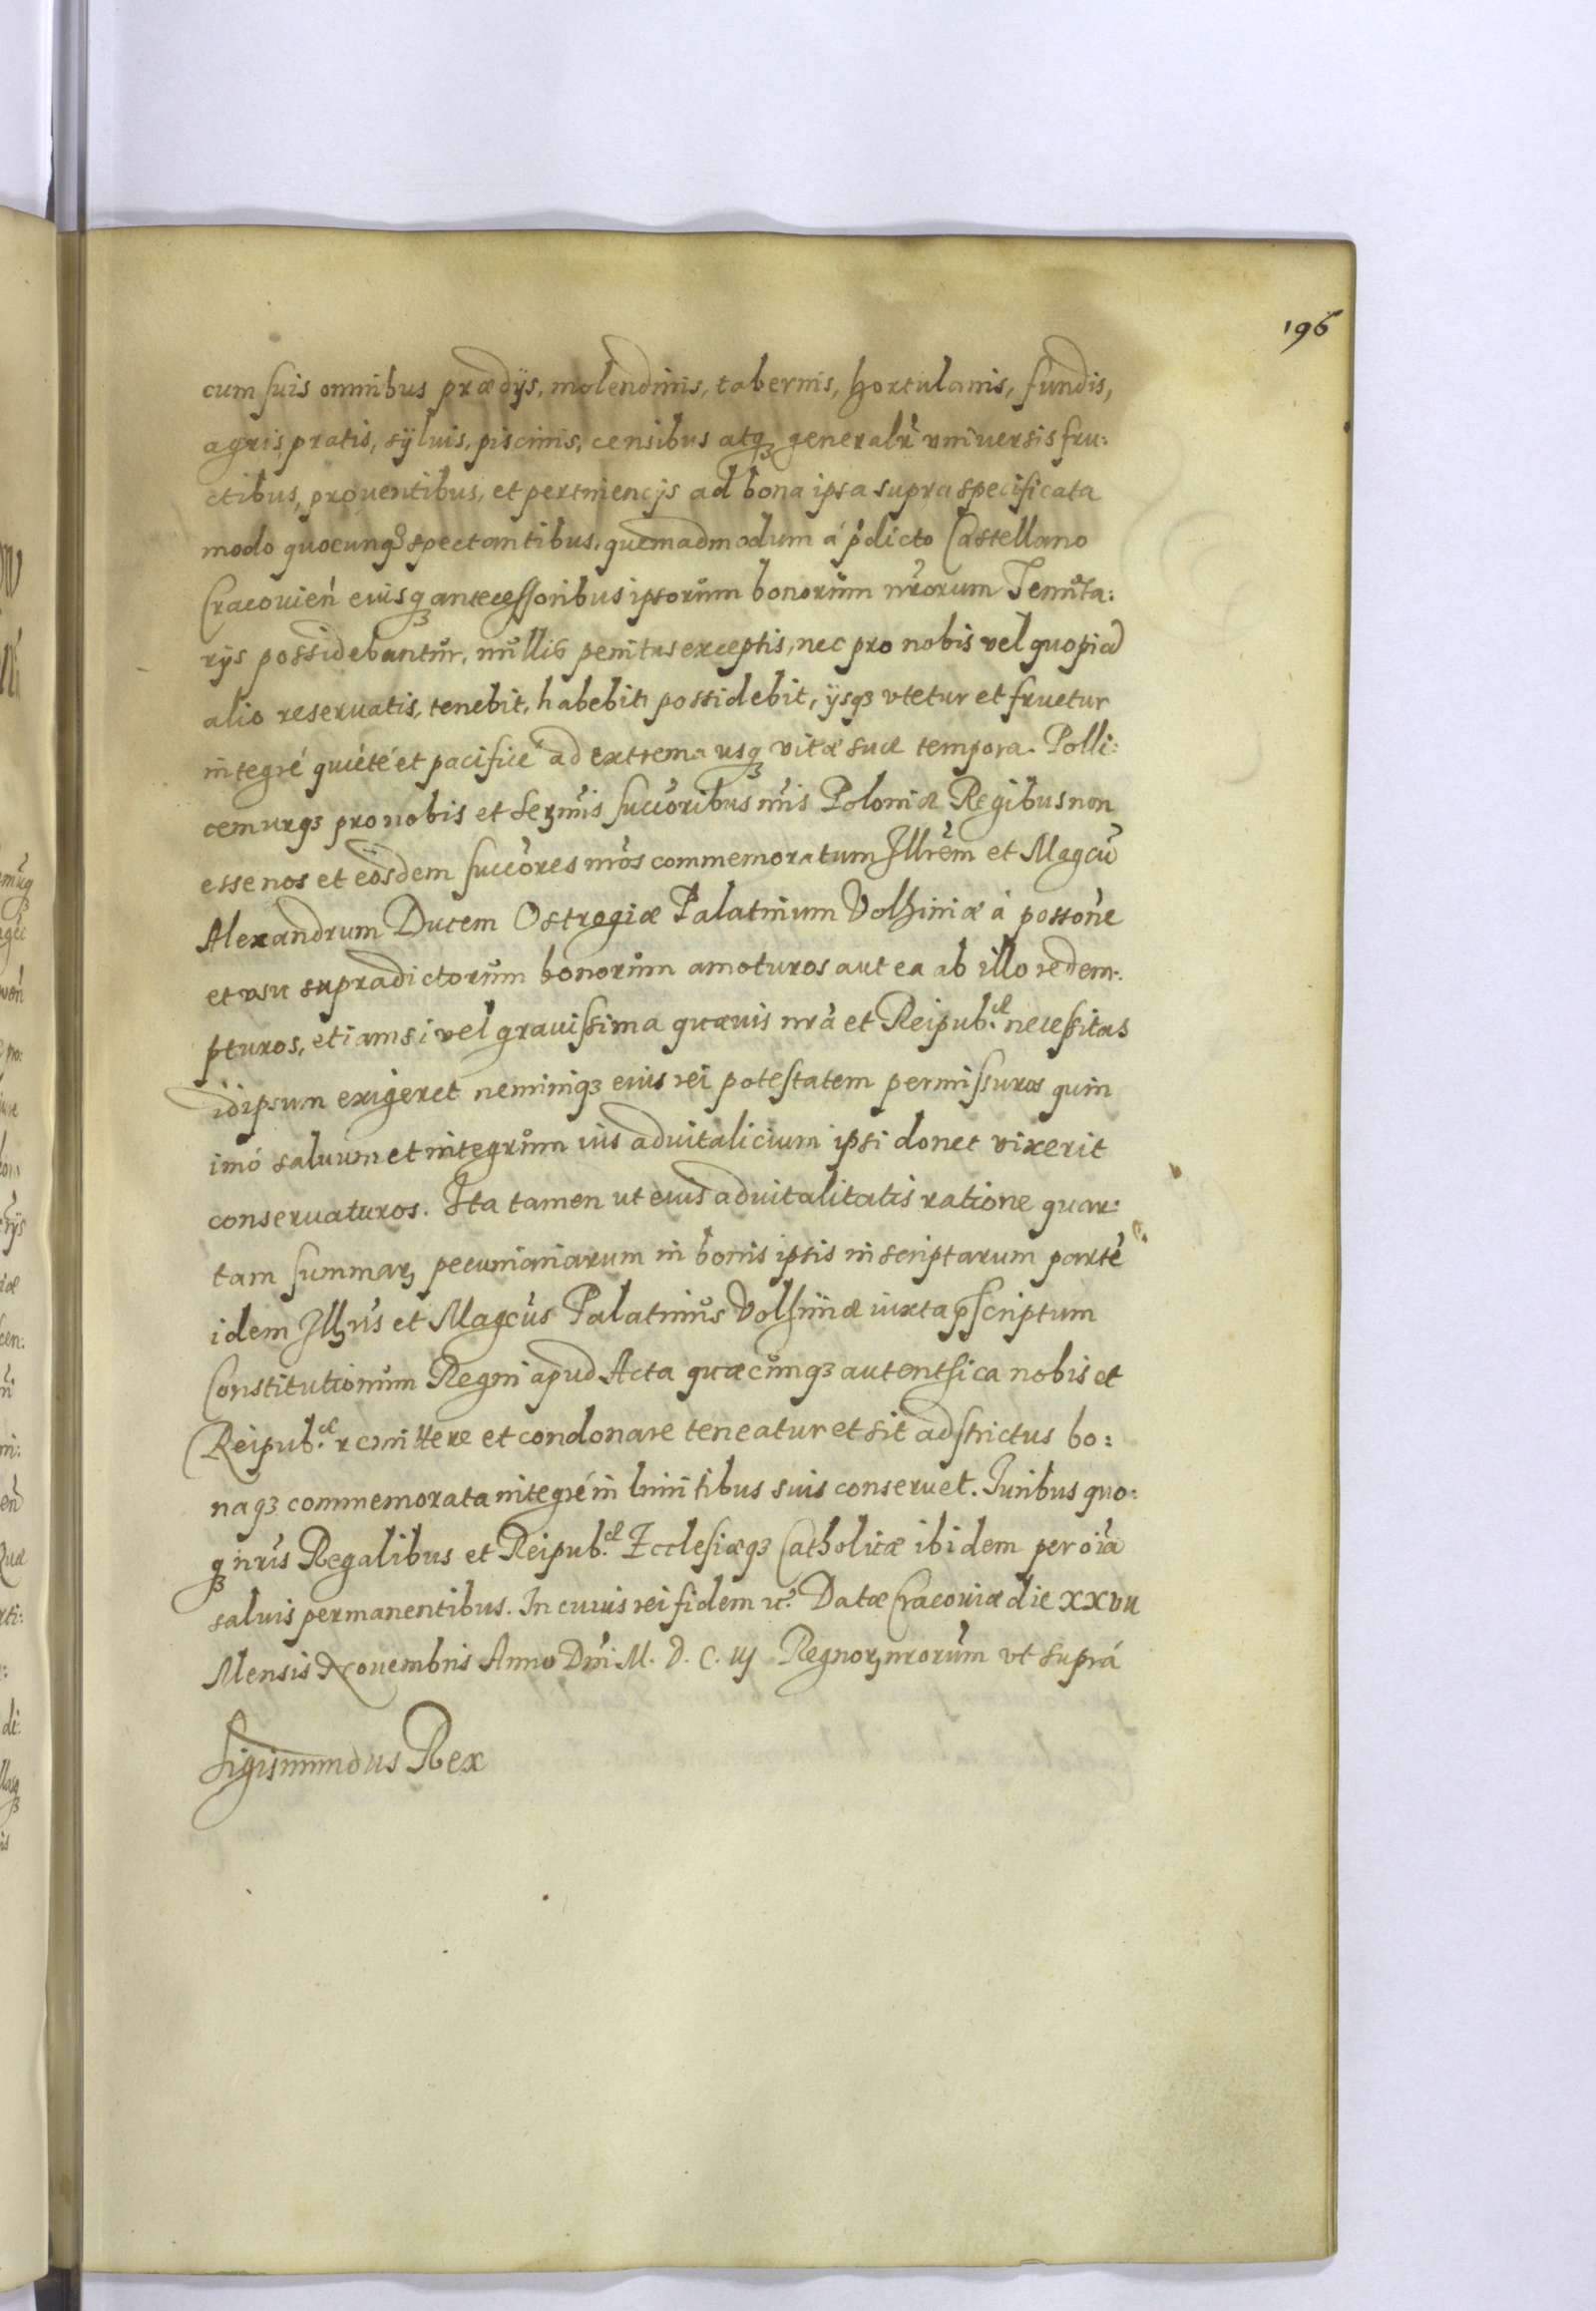 196
cum suis omnibus prædijs, molendinis, tabernis, hortulanis, fundis,
agris, pratis, sÿluis, piscinis, censibus atqꝫ generalr̃ vniuersis fru:
ctibus, prouentibus, et pertinencijs ad bona ipsa supra specificata
modo quocunqꝫ spectantibus, quemadmodum á p̃dicto Castellano
Cracouień eiusqꝫ antecessoribus ipsorum bonorum nr̃orum Tenuta:
rÿs possidebantur, nullis penitus exceptis, nec pro nobis vel quopiã
alio reseruatis, tenebit, habebit, possidebit, ÿsqꝫ vtetur et fruetur
integré quieté et pacificé ad extrema usqꝫ vitæ suæ tempora. Polli:
cemurqꝫ pro nobis et Serm̃is succõribus nr̃is Poloniæ Regibus non
esse nos et eosdem succõres nr̃os commemoratum Illrẽm et Magcũ
Alexandrum Ducem Ostrogiæ Palatinum Volhiniæ á possoñe
et vsu supradictorum bonorum amoturos aut ea ab illo redem:
pturos, etiamsi vel grauissima quæuis nr̃a et Reipub.æ necessitas
idipsum exigeret neminiqꝫ eius rei potestatem permissuros quin
imó saluum et integrum ius aduitalicium ipsi donec vixerit
conseruaturos. Ita tamen ut eius aduitalitatis ratione quar:
tam summarꝫ pecuniariarum in bonis ipsis inscriptarum partẽ
idem Illrỹs et Magcũs Palatinus Volhiniæ iuxta p̃scriptum
Constitutionum Regni apud Acta quæcunqꝫ autenthica nobis et
Reipub.æ remittere et condonare teneatur et sit adstrictus bo:
naqꝫ commemorata integré in limitibus suis conseruet. Iuribus quo:
qꝫ nr̃is Regalibus et Reipub.æ Ecclesiæqꝫ Catholicæ ibidem per oĩa
saluis permanentibus. In cuius rei fidem ꝛc. Datæ Cracouiæ die XXVII
Mensis Nouembris Anno Dñi M. D. C. iij Regnorꝫ nrorum vt suprá
Sigismundus Rex